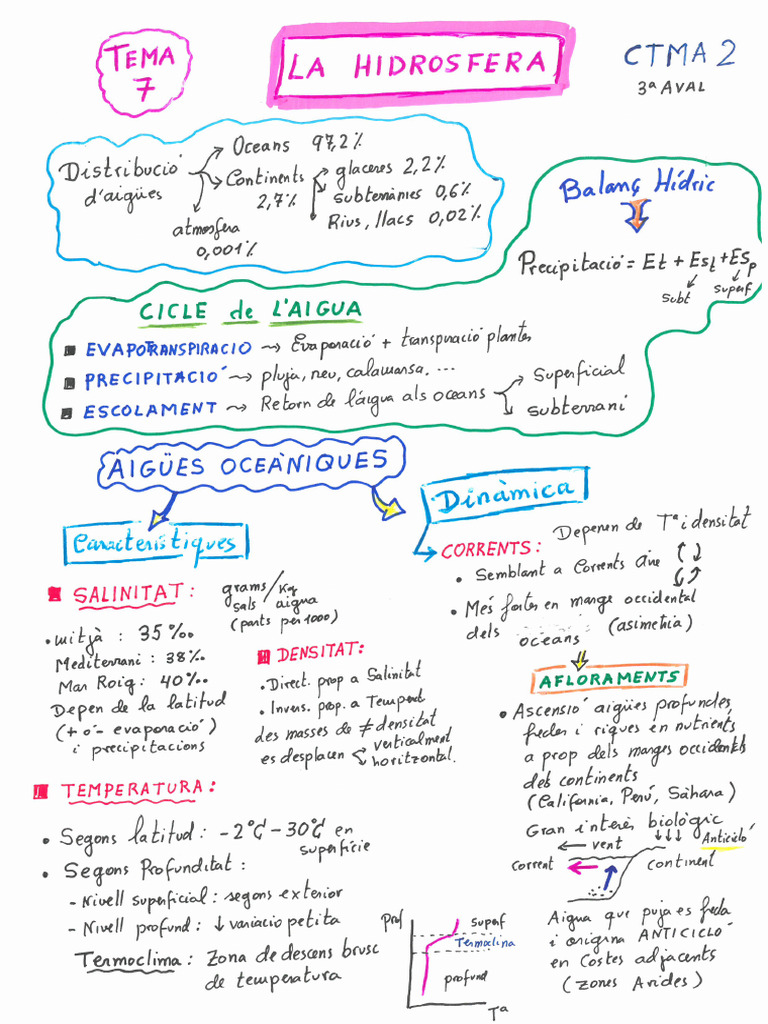 TEMA 7
LA HIDROSFERA
CTMA 2
3ª AVAL
Distribució d'aigües
Oceans 97,2%
Continents 2,7%
glaceres 2,2%
subterrànies 0,6%
Rius, llacs 0,02%
atmosfera 0,001%
Balanç Hídric
Precipitació = Et + Est + ESp
subt
superf
CICLE de L'AIGUA
EVAPOTRANSPIRACIO → Evaporació + transpiració plantes
PRECIPITACIÓ → pluja, neu, calamarsa. ...
ESCOLAMENT → Retorn de l'áigua als oceans
Superficial
subterrani
AIGÜES OCEÀNIQUES
Característiques
SALINITAT:
grams sals / Kg aigua
(parts per 1000)
• mitjà : 35‰
Mediterrani : 38‰
Mar Roig : 40‰
Depen de la latitud
(+ o - evaporació)
i precipitacions
DENSITAT:
• Direct. prop a Salinitat
• Invers. prop. a Temperat
des masses de ≠ densitat
es desplacen
verticalment
horitzontal.
TEMPERATURA:
• Segons latitud: -2°C - 30°C en superfície
• Segons Profunditat :
- Nivell superficial : segons exterior
- Nivell profund : ↓ variacio petita
Termoclima : Zona de descens brusc
de temperatura
Prof
superf
Termoclina
profund
Tª
Dinàmica
CORRENTS:
Depenen de Tª i densitat
• Semblant a Corrents aire
• Més fortes en marge occidental
dels oceans (asimetria)
AFLORAMENTS
• Ascensió aigües profundes,
fredes i riques en nutrients
a prop dels marges occidentals
dels continents
(California, Perú, Sàhara)
Gran interès biològic
← vent
↓↓↓
Anticicló
corrent
continent
Aigua que puja es freda
i origina ANTICICLÓ
en Costes adjacents
(zones Arides)